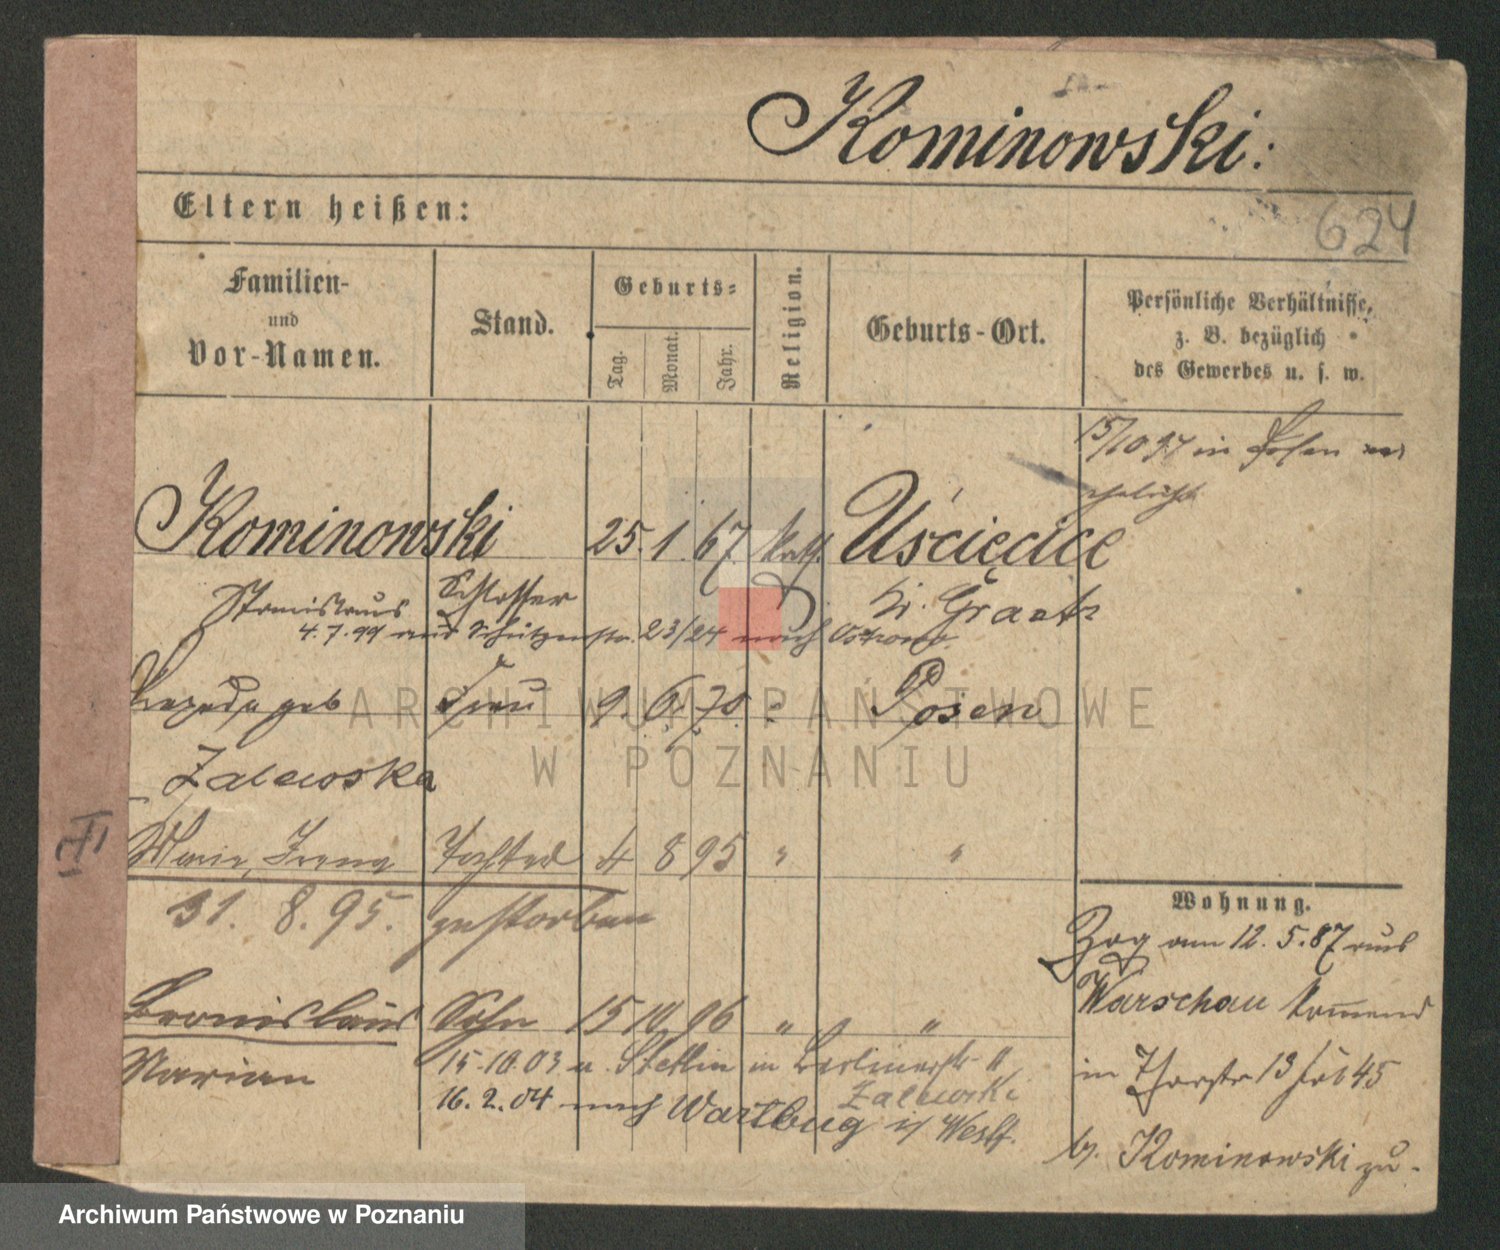 Kominowski:
624
Eltern heißen:
Familien-
und
Vor-Namen.
Stand.
Geburts-
Tag.
Monat.
Jahr.
Religion.
Geburts-Ort.
Persönliche Verhältnisse,
z. B. bezüglich
des Gewerbes u. s. w.
15/10 94 in Posen ver
ehelicht
Kominowski 25. 1. 67. kath. Uścięcice
Stanislaus Schlosser Kr. Graetz
4. 7. 99 aus Schützenstr. 23/24 nach Ostrowo.
geb Frau 9. 6. 70 " Posen
Zalewska
Marie, Irena Tochter 4 8 95 " "
31. 8. 95. gestorben
Bronislaus Sohn 15 10 96 " " "
Marian
15.10.03 v. Stettin in Berlinerstr.
Zalewski
16. 2. 04 nach Wartburg i/ Westf.
Wohnung.
Zog am 12. 5. 87 aus
Warschau kommend
in Thorstr 13
b. Kominowski zu.
II
ARCHIWUM PAŃSTWOWE
W POZNANIU
Archiwum Państwowe w Poznaniu